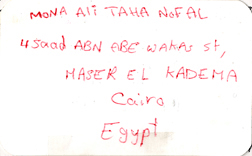 MONA Ali TAHA NOFAL
4 Saad ABN ABE WAKAS st,
MASER EL KADEMA
Cairo,
Egypt